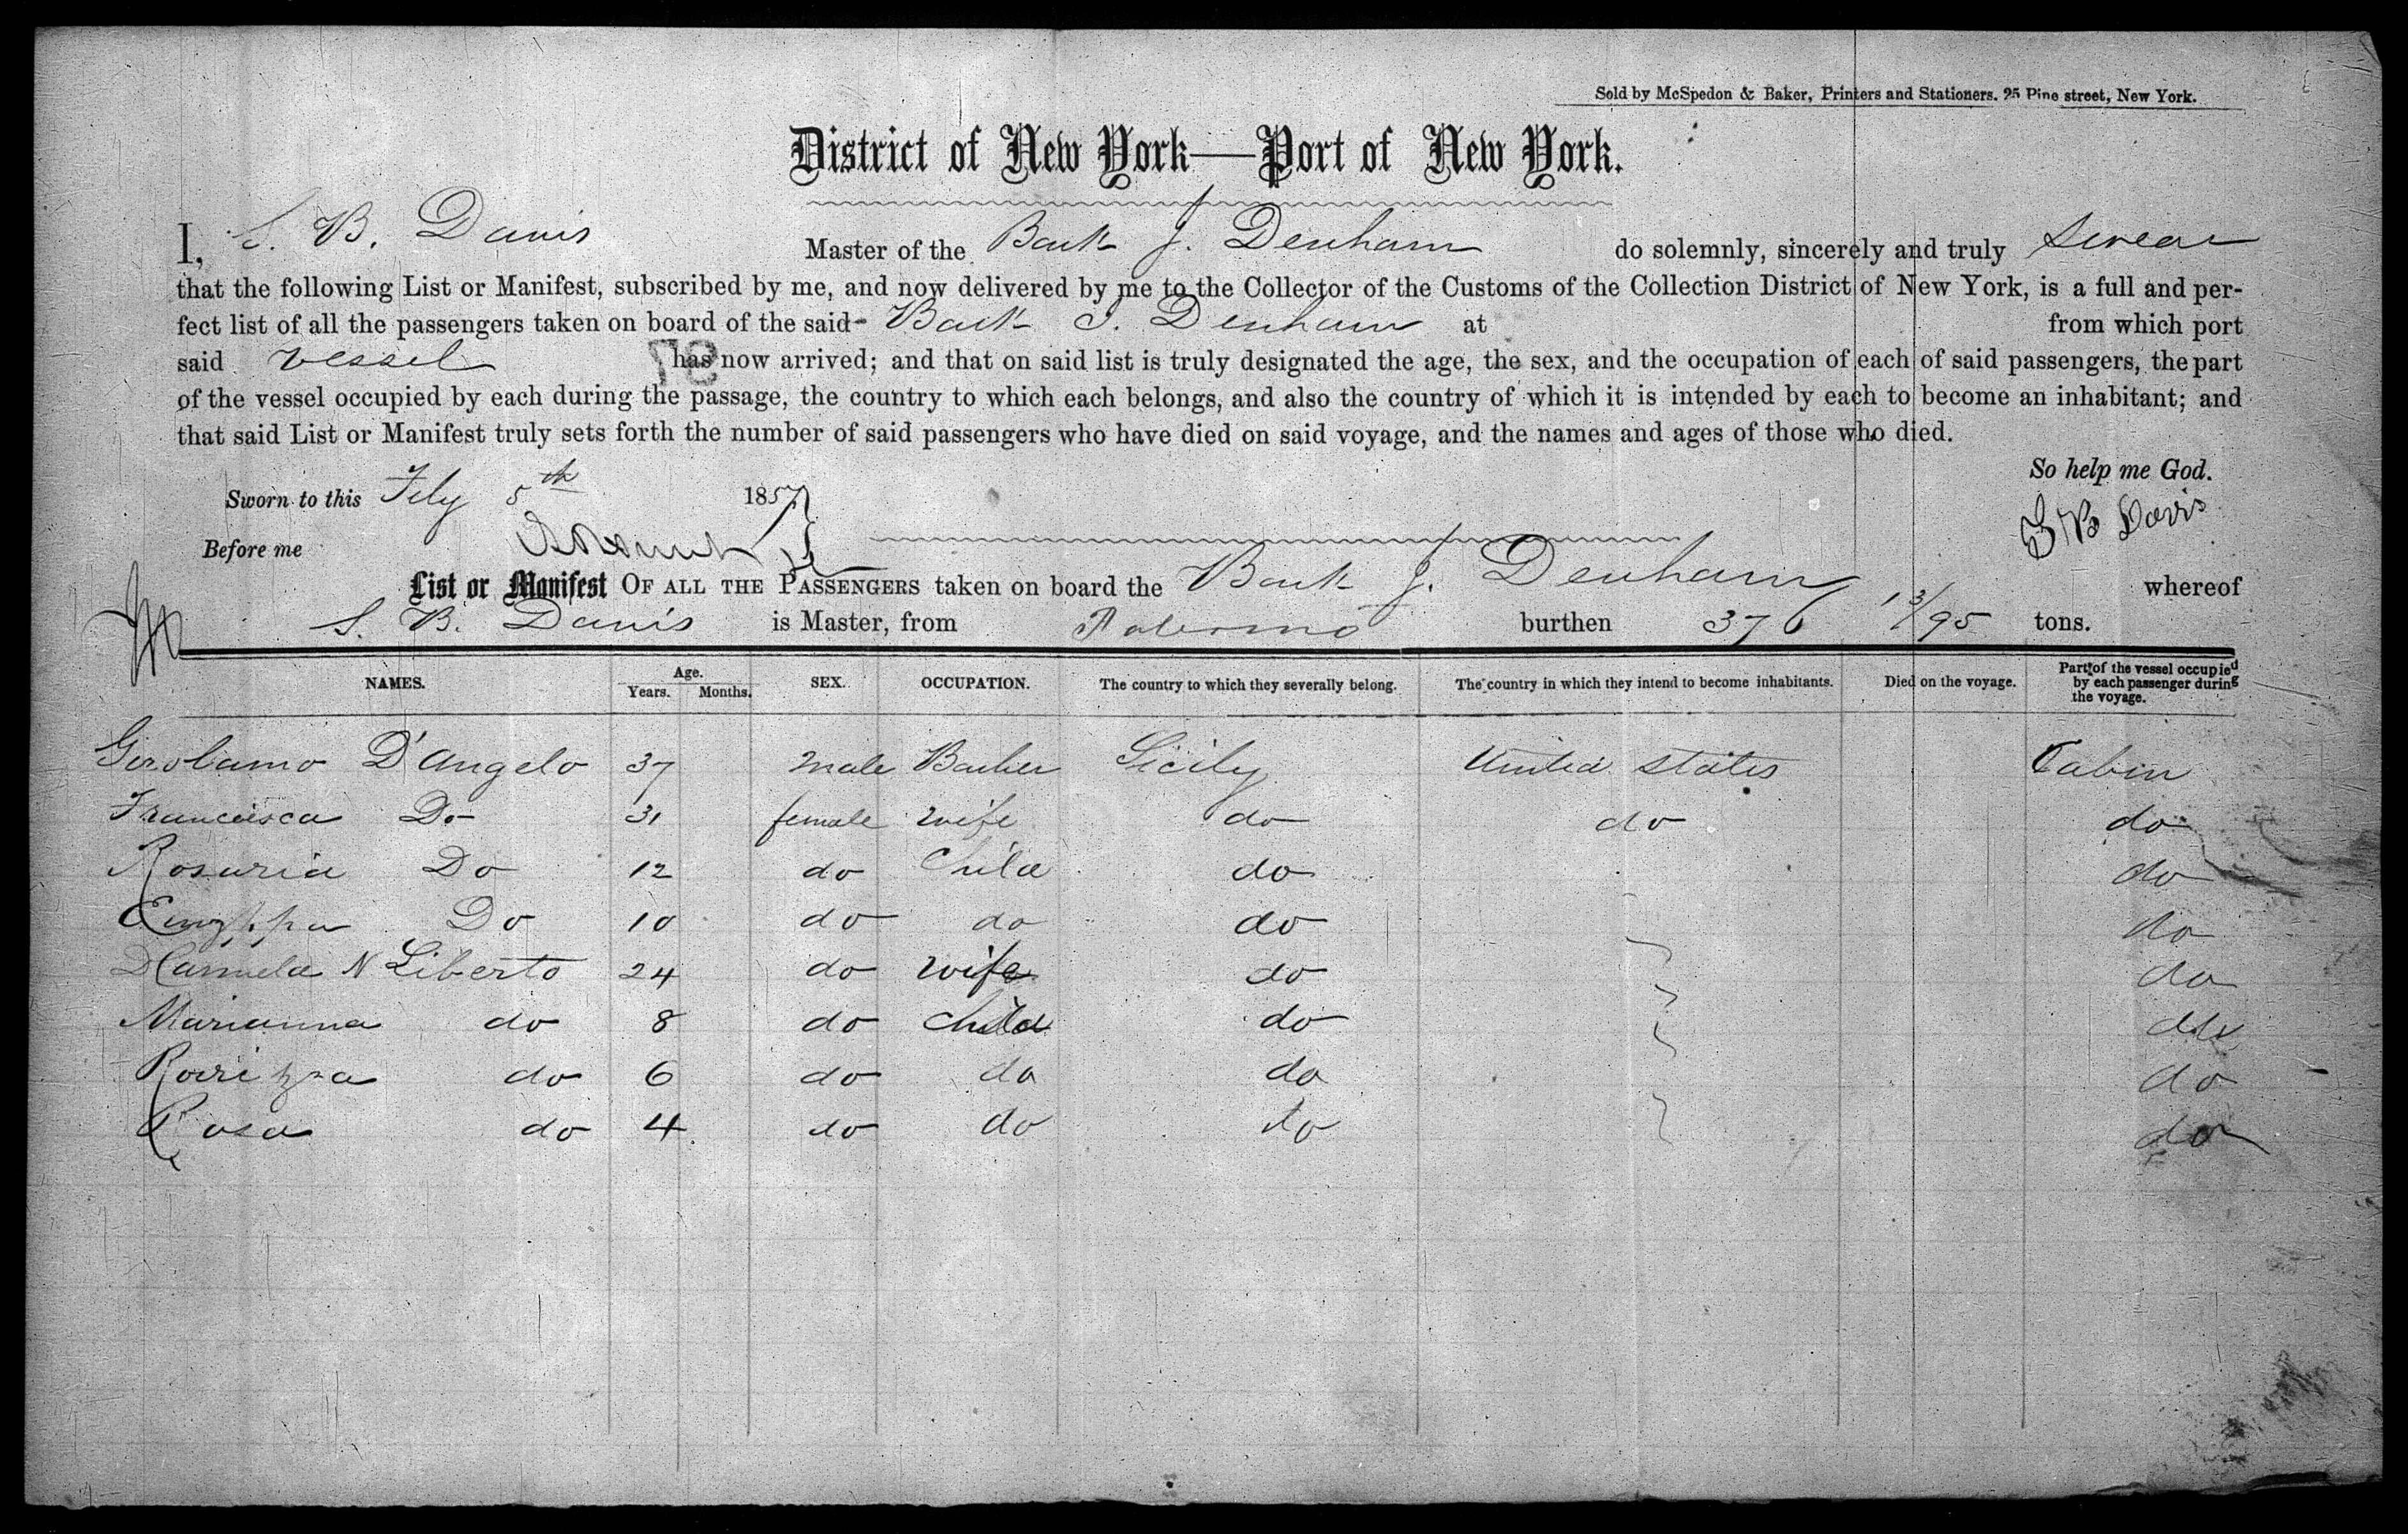 Sold by McSpedon & Baker, Printers and Stationers. 25 Pine street, New York.
District of New York—Port of New York.
I, S. B. Davis Master of the Bark J. Denham do solemnly, sincerely and truly swear
that the following List or Manifest, subscribed by me, and now delivered by me to the Collector of the Customs of the Collection District of New York, is a full and per-
fect list of all the passengers taken on board of the said Bark J. Denham at from which port
said vessel has now arrived; and that on said list is truly designated the age, the sex, and the occupation of each of said passengers, the part
of the vessel occupied by each during the passage, the country to which each belongs, and also the country of which it is intended by each to become an inhabitant; and
that said List or Manifest truly sets forth the number of said passengers who have died on said voyage, and the names and ages of those who died.
So help me God.
Sworn to this 5th 1857
S B Davis
Before me
List or Manifest OF ALL THE PASSENGERS taken on board the Bark J. Denham whereof
S. B. Davis is Master, from Palermo burthen 376 13/95 tons.
NAMES. Age. Years. Months. SEX. OCCUPATION. The country to which they severally belong. The country in which they intend to become inhabitants. Died on the voyage. Part of the vessel occupied by each passenger during the voyage.
Girolamo D'Angelo 37 male Barber Sicily United States Cabin
Francisca Do 31 female wife do do do
Rosaria Do 12 do Child do do
Do 10 do do do do
N Liberto 24 do wife do do
Marianna do 8 do child do do
do 6 do do do do
Rosa do 4 do do do do